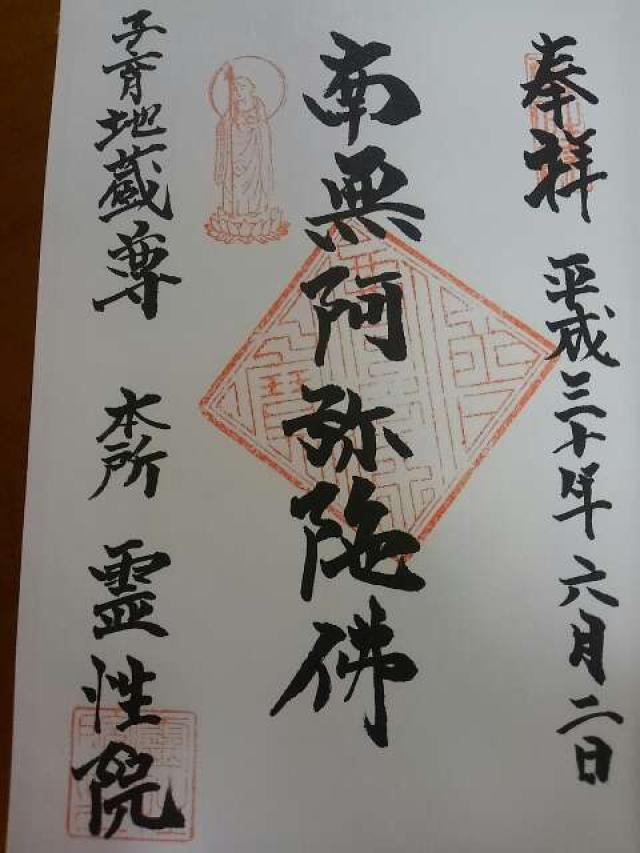 奉拝 平成三十年六月二日
南無阿弥陀佛
子育地蔵尊 本所 霊性院